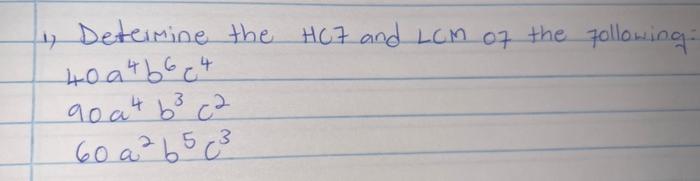 1, Determine the HCF and LCM of the following:
40a⁴b⁶c⁴
90a⁴b³c²
60a²b⁵c³